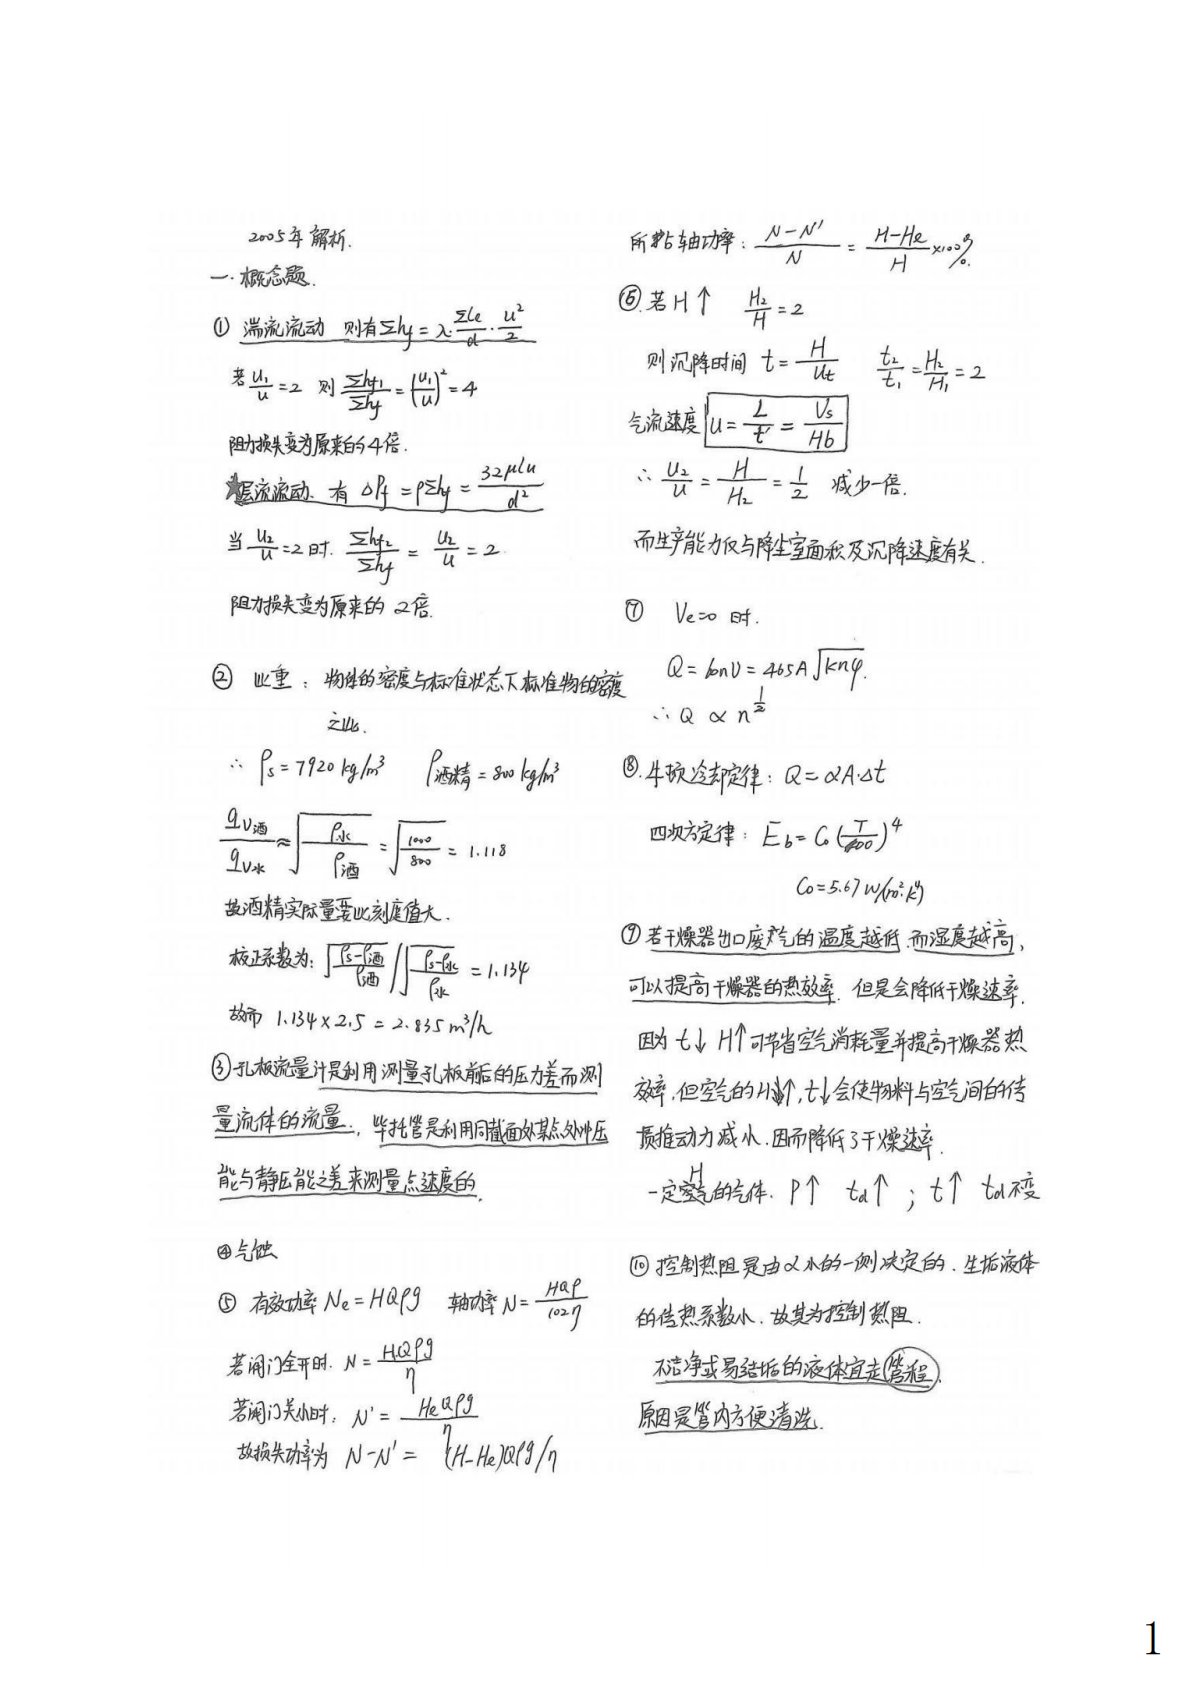 2005年 解析.
一. 概念题.
① 湍流流动 则有Σhf = λ·Σle/d·u²/2
若 u₁/u = 2 则 Σhf₁/Σhf = (u₁/u)² = 4
阻力损失变为原来的4倍.
★层流流动. 有 ΔPf = ρΣhf = 32μlu/d²
当 u₂/u = 2时. Σhf₂/Σhf = u₂/u = 2
阻力损失变为原来的 2倍.
② 比重: 物体的密度与标准状态下标准物的密度
之比.
∴ ρs = 7920 kg/m³ ρ酒精 = 800 kg/m³
qv酒/qv水 ≈ √(ρ水/ρ酒) = √(1000/800) = 1.118
故酒精实际量要比刻度值大.
校正系数为: √((ρs-ρ酒)/ρ酒) / √((ρs-ρ水)/ρ水) = 1.134
故而 1.134×2.5 = 2.835 m³/h
③孔板流量计是利用测量孔板前后的压力差而测
量流体的流量., 毕托管是利用同截面处某点处冲压
能与静压能之差来测量点速度的.
④气蚀
⑤ 有效功率 Ne = HQρg 轴功率 N = HQρ/102η
若阀门全开时. N = HQρg/η
若阀门关小时. N' = HeQρg/η
故损失功率为 N-N' = (H-He)Qρg/η
所占轴功率: (N-N')/N = (H-He)/H ×100%.
⑥.若H↑ H₂/H = 2
则沉降时间 t = H/ut t₂/t₁ = H₂/H₁ = 2
气流速度 u = L/t' = Vs/Hb
∴ u₂/u = H/H₂ = 1/2 减少一倍.
而生产能力仅与降尘室面积及沉降速度有关.
⑦ Ve=0 时.
Q = 60nV = 465A√(Knφ).
∴ Q ∝ n^½
⑧.牛顿冷却定律: Q = αA·Δt
四次方定律: Eb = C₀(T/100)⁴
C₀=5.67 W/(m²·k⁴)
⑨若干燥器出口废气的温度越低,而湿度越高,
可以提高干燥器的热效率. 但是会降低干燥速率.
因为 t↓ H↑可节省空气消耗量并提高干燥器热
效率,但空气的H↑,t↓会使物料与空气间的传
质推动力减小.因而降低了干燥速率.
一定H的气体. P↑ td↑ ; t↑ td不变
⑩ 控制热阻是由α小的一侧决定的. 生垢液体
的传热系数小. 故其为控制热阻.
不洁净或易结垢的液体宜走管程.
原因是管内方便清洗.
1